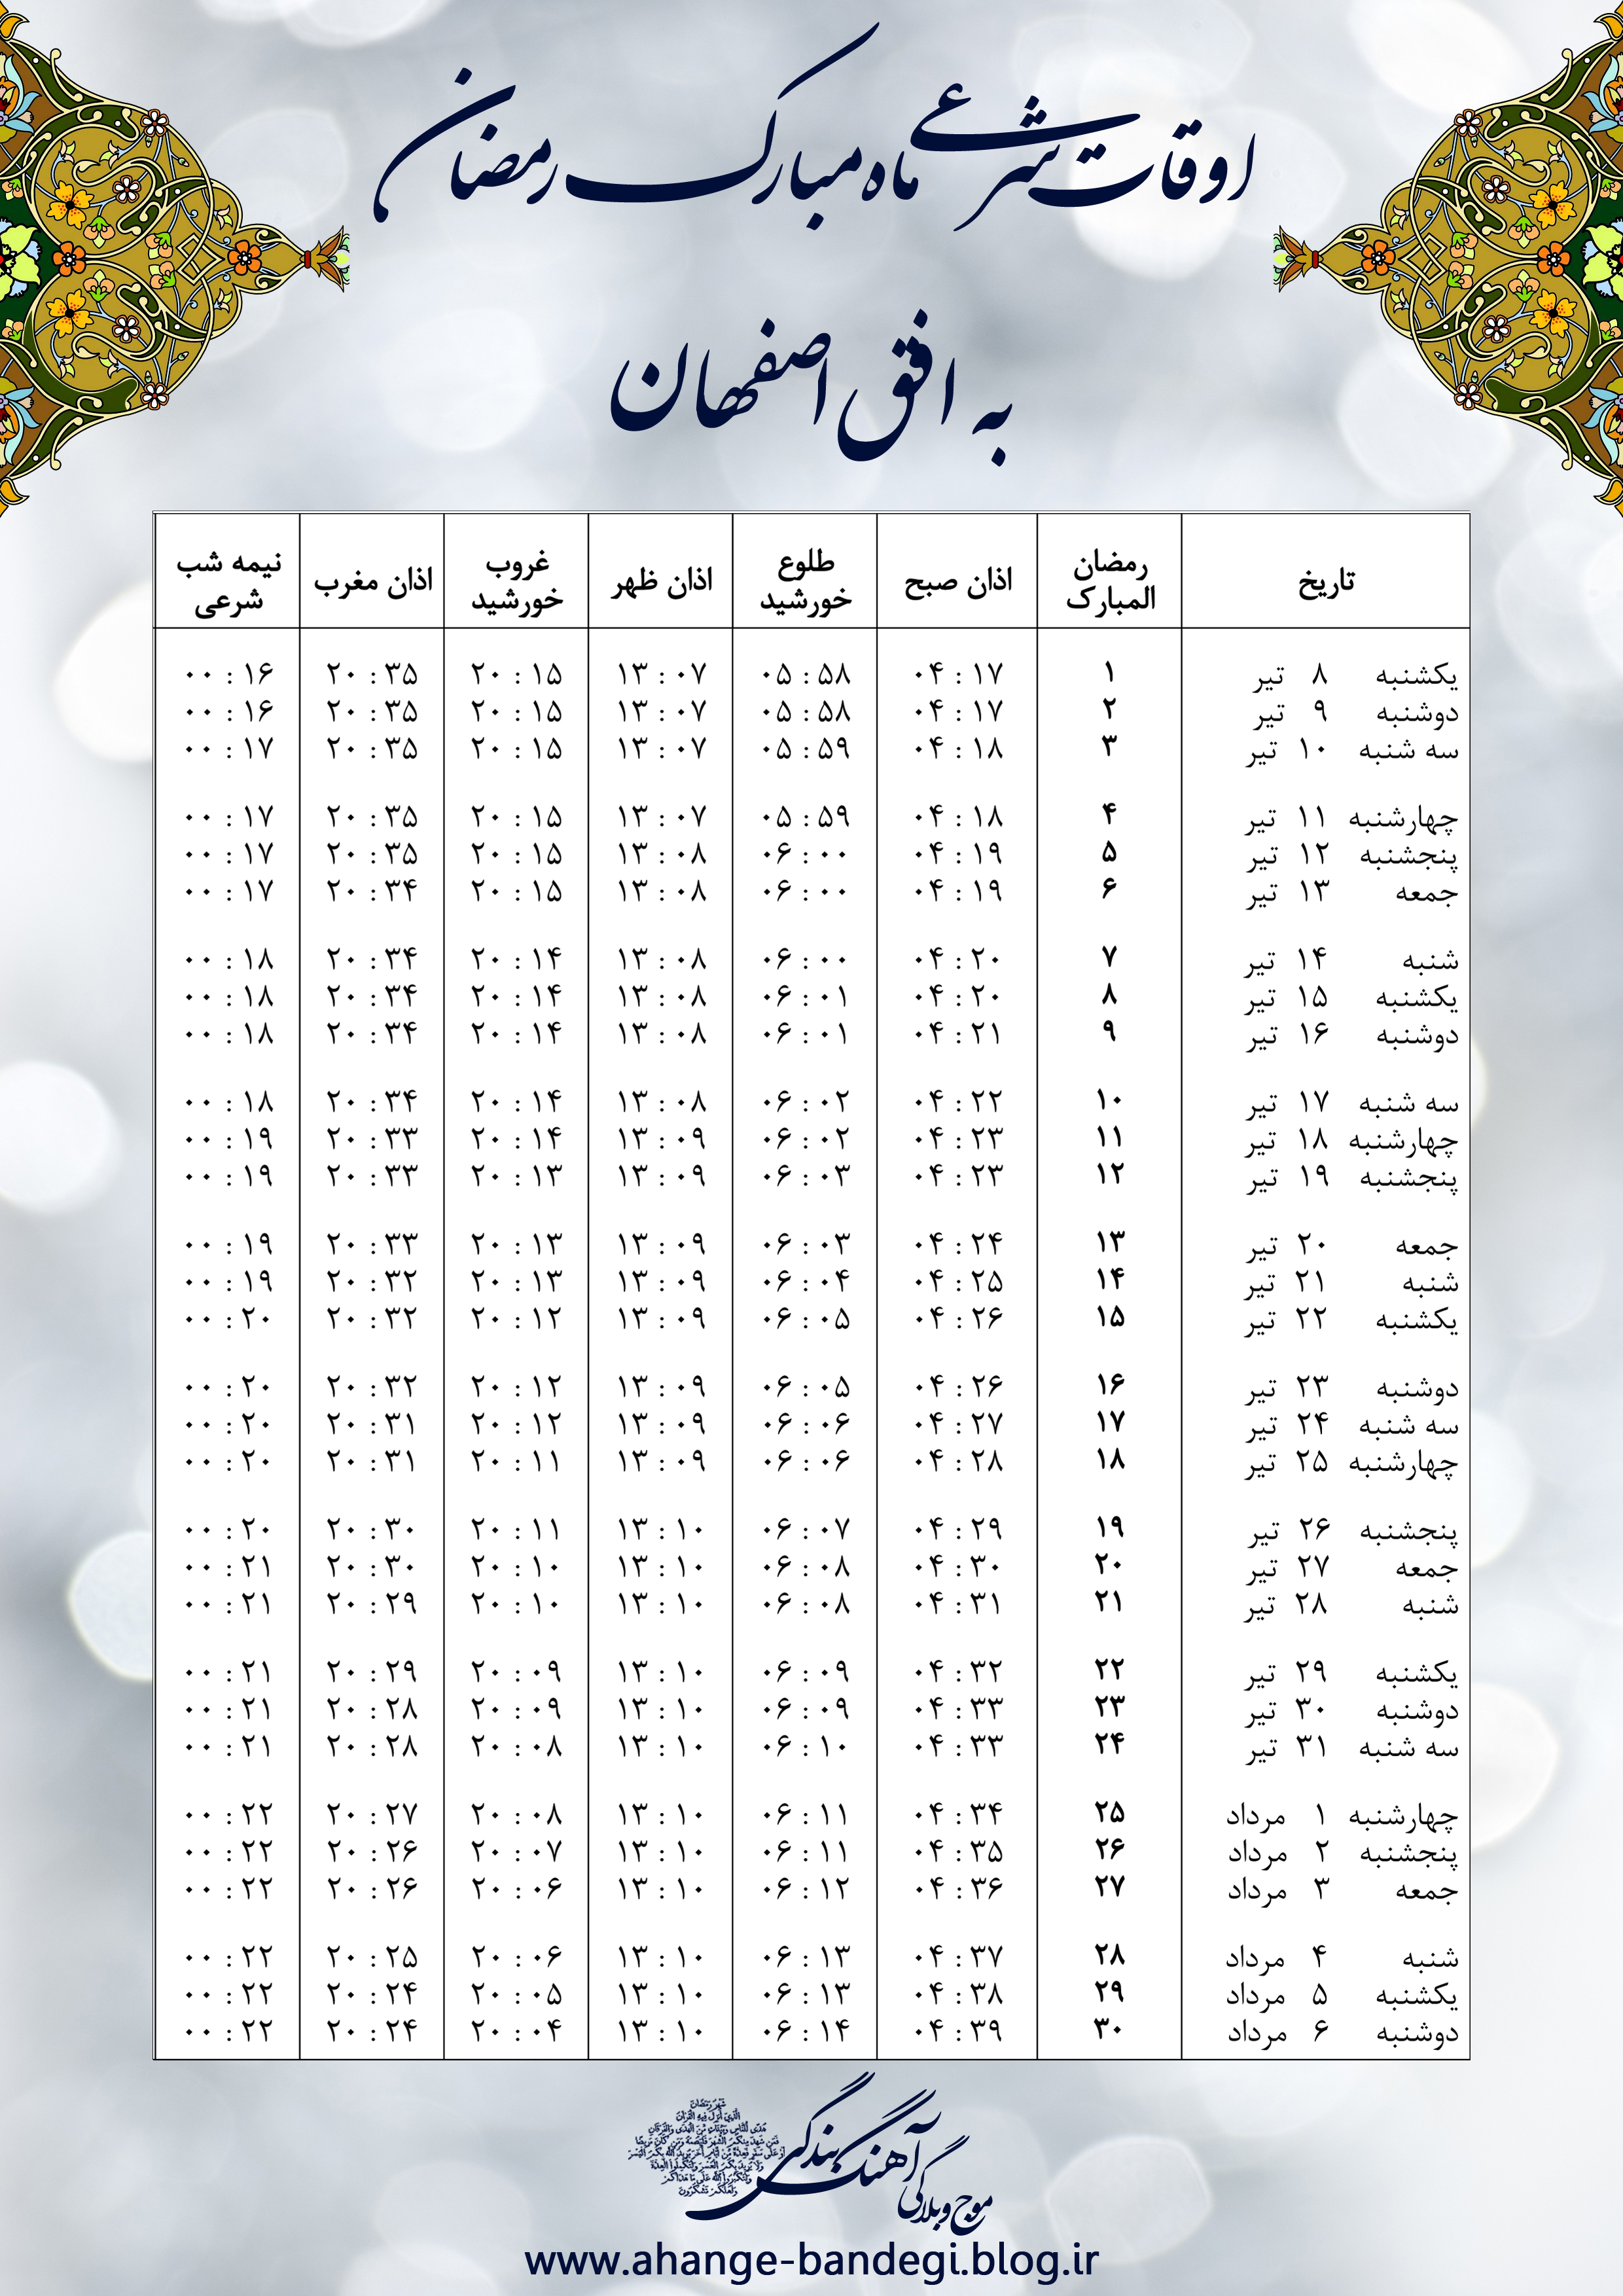 اوقات شرعی ماه مبارک رمضان
به افق اصفهان
تاریخ رمضان المبارک اذان صبح طلوع خورشید اذان ظهر غروب خورشید اذان مغرب نیمه شب شرعی
یکشنبه ۸ تیر ۱ ۰۴:۱۷ ۰۵:۵۸ ۱۳:۰۷ ۲۰:۱۵ ۲۰:۳۵ ۰۰:۱۶
دوشنبه ۹ تیر ۲ ۰۴:۱۷ ۰۵:۵۸ ۱۳:۰۷ ۲۰:۱۵ ۲۰:۳۵ ۰۰:۱۶
سه شنبه ۱۰ تیر ۳ ۰۴:۱۸ ۰۵:۵۹ ۱۳:۰۷ ۲۰:۱۵ ۲۰:۳۵ ۰۰:۱۷
چهارشنبه ۱۱ تیر ۴ ۰۴:۱۸ ۰۵:۵۹ ۱۳:۰۷ ۲۰:۱۵ ۲۰:۳۵ ۰۰:۱۷
پنجشنبه ۱۲ تیر ۵ ۰۴:۱۹ ۰۶:۰۰ ۱۳:۰۸ ۲۰:۱۵ ۲۰:۳۵ ۰۰:۱۷
جمعه ۱۳ تیر ۶ ۰۴:۱۹ ۰۶:۰۰ ۱۳:۰۸ ۲۰:۱۵ ۲۰:۳۴ ۰۰:۱۷
شنبه ۱۴ تیر ۷ ۰۴:۲۰ ۰۶:۰۰ ۱۳:۰۸ ۲۰:۱۴ ۲۰:۳۴ ۰۰:۱۸
یکشنبه ۱۵ تیر ۸ ۰۴:۲۰ ۰۶:۰۱ ۱۳:۰۸ ۲۰:۱۴ ۲۰:۳۴ ۰۰:۱۸
دوشنبه ۱۶ تیر ۹ ۰۴:۲۱ ۰۶:۰۱ ۱۳:۰۸ ۲۰:۱۴ ۲۰:۳۴ ۰۰:۱۸
سه شنبه ۱۷ تیر ۱۰ ۰۴:۲۲ ۰۶:۰۲ ۱۳:۰۸ ۲۰:۱۴ ۲۰:۳۴ ۰۰:۱۸
چهارشنبه ۱۸ تیر ۱۱ ۰۴:۲۳ ۰۶:۰۲ ۱۳:۰۹ ۲۰:۱۴ ۲۰:۳۳ ۰۰:۱۹
پنجشنبه ۱۹ تیر ۱۲ ۰۴:۲۳ ۰۶:۰۳ ۱۳:۰۹ ۲۰:۱۳ ۲۰:۳۳ ۰۰:۱۹
جمعه ۲۰ تیر ۱۳ ۰۴:۲۴ ۰۶:۰۳ ۱۳:۰۹ ۲۰:۱۳ ۲۰:۳۳ ۰۰:۱۹
شنبه ۲۱ تیر ۱۴ ۰۴:۲۵ ۰۶:۰۴ ۱۳:۰۹ ۲۰:۱۳ ۲۰:۳۲ ۰۰:۱۹
یکشنبه ۲۲ تیر ۱۵ ۰۴:۲۶ ۰۶:۰۵ ۱۳:۰۹ ۲۰:۱۲ ۲۰:۳۲ ۰۰:۲۰
دوشنبه ۲۳ تیر ۱۶ ۰۴:۲۶ ۰۶:۰۵ ۱۳:۰۹ ۲۰:۱۲ ۲۰:۳۲ ۰۰:۲۰
سه شنبه ۲۴ تیر ۱۷ ۰۴:۲۷ ۰۶:۰۶ ۱۳:۰۹ ۲۰:۱۲ ۲۰:۳۱ ۰۰:۲۰
چهارشنبه ۲۵ تیر ۱۸ ۰۴:۲۸ ۰۶:۰۶ ۱۳:۰۹ ۲۰:۱۱ ۲۰:۳۱ ۰۰:۲۰
پنجشنبه ۲۶ تیر ۱۹ ۰۴:۲۹ ۰۶:۰۷ ۱۳:۱۰ ۲۰:۱۱ ۲۰:۳۰ ۰۰:۲۰
جمعه ۲۷ تیر ۲۰ ۰۴:۳۰ ۰۶:۰۸ ۱۳:۱۰ ۲۰:۱۰ ۲۰:۳۰ ۰۰:۲۱
شنبه ۲۸ تیر ۲۱ ۰۴:۳۱ ۰۶:۰۸ ۱۳:۱۰ ۲۰:۱۰ ۲۰:۲۹ ۰۰:۲۱
یکشنبه ۲۹ تیر ۲۲ ۰۴:۳۲ ۰۶:۰۹ ۱۳:۱۰ ۲۰:۰۹ ۲۰:۲۹ ۰۰:۲۱
دوشنبه ۳۰ تیر ۲۳ ۰۴:۳۳ ۰۶:۰۹ ۱۳:۱۰ ۲۰:۰۹ ۲۰:۲۸ ۰۰:۲۱
سه شنبه ۳۱ تیر ۲۴ ۰۴:۳۳ ۰۶:۱۰ ۱۳:۱۰ ۲۰:۰۸ ۲۰:۲۸ ۰۰:۲۱
چهارشنبه ۱ مرداد ۲۵ ۰۴:۳۴ ۰۶:۱۱ ۱۳:۱۰ ۲۰:۰۸ ۲۰:۲۷ ۰۰:۲۲
پنجشنبه ۲ مرداد ۲۶ ۰۴:۳۵ ۰۶:۱۱ ۱۳:۱۰ ۲۰:۰۷ ۲۰:۲۶ ۰۰:۲۲
جمعه ۳ مرداد ۲۷ ۰۴:۳۶ ۰۶:۱۲ ۱۳:۱۰ ۲۰:۰۶ ۲۰:۲۶ ۰۰:۲۲
شنبه ۴ مرداد ۲۸ ۰۴:۳۷ ۰۶:۱۳ ۱۳:۱۰ ۲۰:۰۶ ۲۰:۲۵ ۰۰:۲۲
یکشنبه ۵ مرداد ۲۹ ۰۴:۳۸ ۰۶:۱۳ ۱۳:۱۰ ۲۰:۰۵ ۲۰:۲۴ ۰۰:۲۲
دوشنبه ۶ مرداد ۳۰ ۰۴:۳۹ ۰۶:۱۴ ۱۳:۱۰ ۲۰:۰۴ ۲۰:۲۴ ۰۰:۲۲
موج وبلاگی آهنگ بندگی
شهر رمضان
الذی انزل فیه القرآن
هدی للناس وبینات من الهدی والفرقان
فمن شهد منکم الشهر فلیصمه ومن کان مریضا
او علی سفر فعدة من ایام اخر یرید الله بکم الیسر
ولا یرید بکم العسر ولتکملوا العدة
ولتکبروا الله علی ما هداکم
ولعلکم تشکرون
www.ahange-bandegi.blog.ir